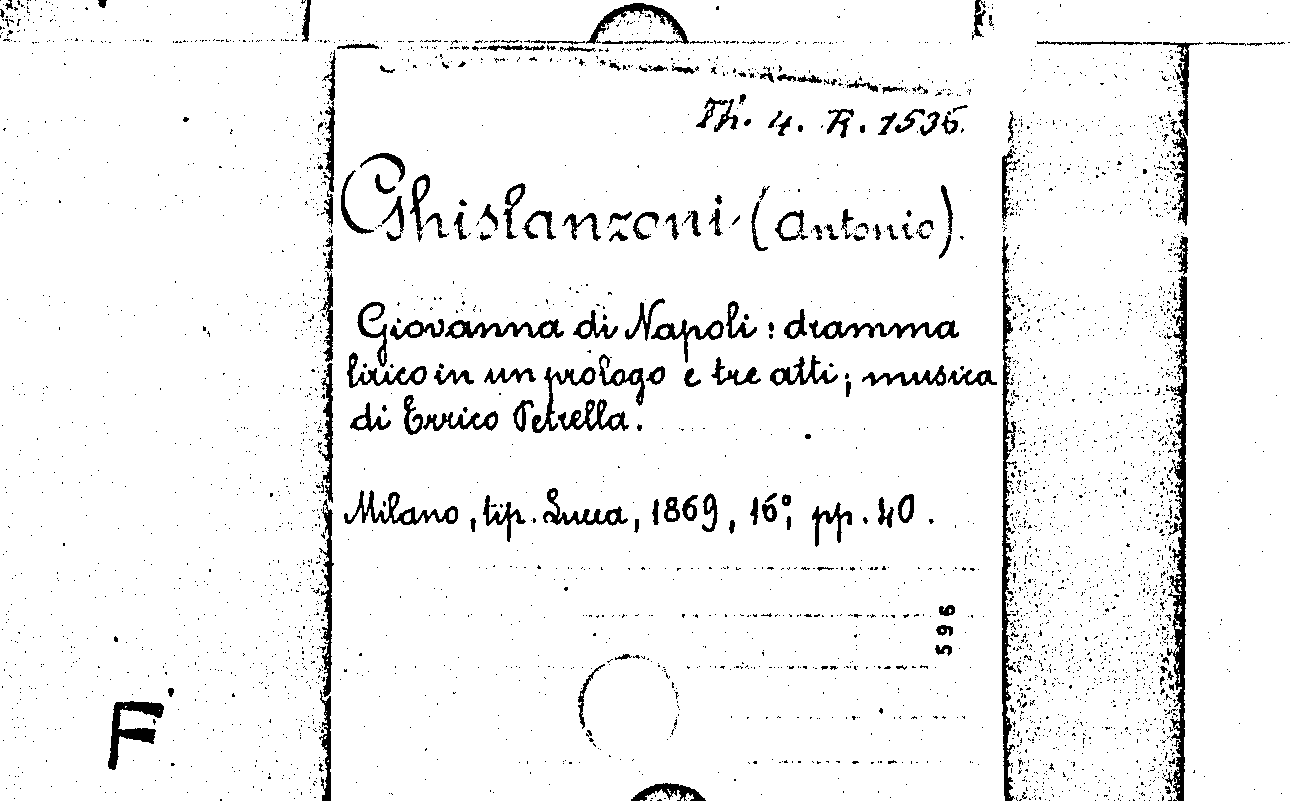 Th. 4. R. 1536.
Ghislanzoni (Antonio).
Giovanna di Napoli : dramma
lirico in un prologo e tre atti ; musica
di Errico Petrella.
Milano, tip. Lucca, 1869, 16°, pp. 40.
596
F